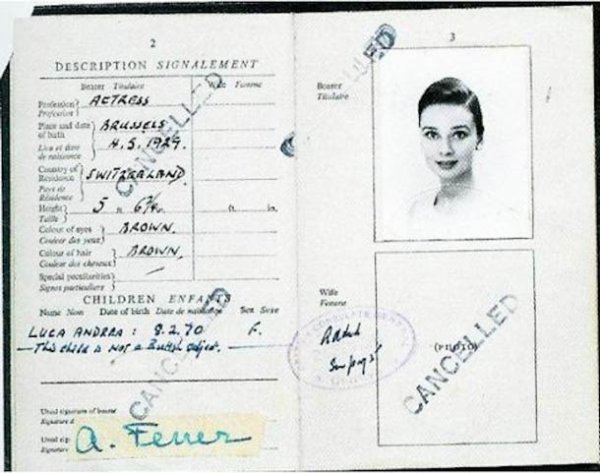 2
DESCRIPTION SIGNALEMENT
Bearer Titulaire
Wife Femme
Profession
Profession
ACTRESS
Place and date of birth
BRUSSELS
Lieu et date de naissance
4.5.1929.
Country of Residence
SWITZERLAND
Pays de Résidence
Height
Taille
5 ft. 6¾ in.
ft. in.
Colour of eyes
Couleur des yeux
BROWN.
Colour of hair
Couleur des cheveux
BROWN.
Special peculiarities
Signes particuliers
CHILDREN ENFANTS
Name Nom Date of birth Date de naissance Sex Sexe
LUCA ANDREA : 8.2.70 F.
This child is not a British subject.
Usual signature of bearer
Signature d
Usual sig
Signature d
A. Ferrer
CANCELLED
CANCELLED
3
Bearer
Titulaire
Wife
Femme
(PHOTO)
CANCELLED